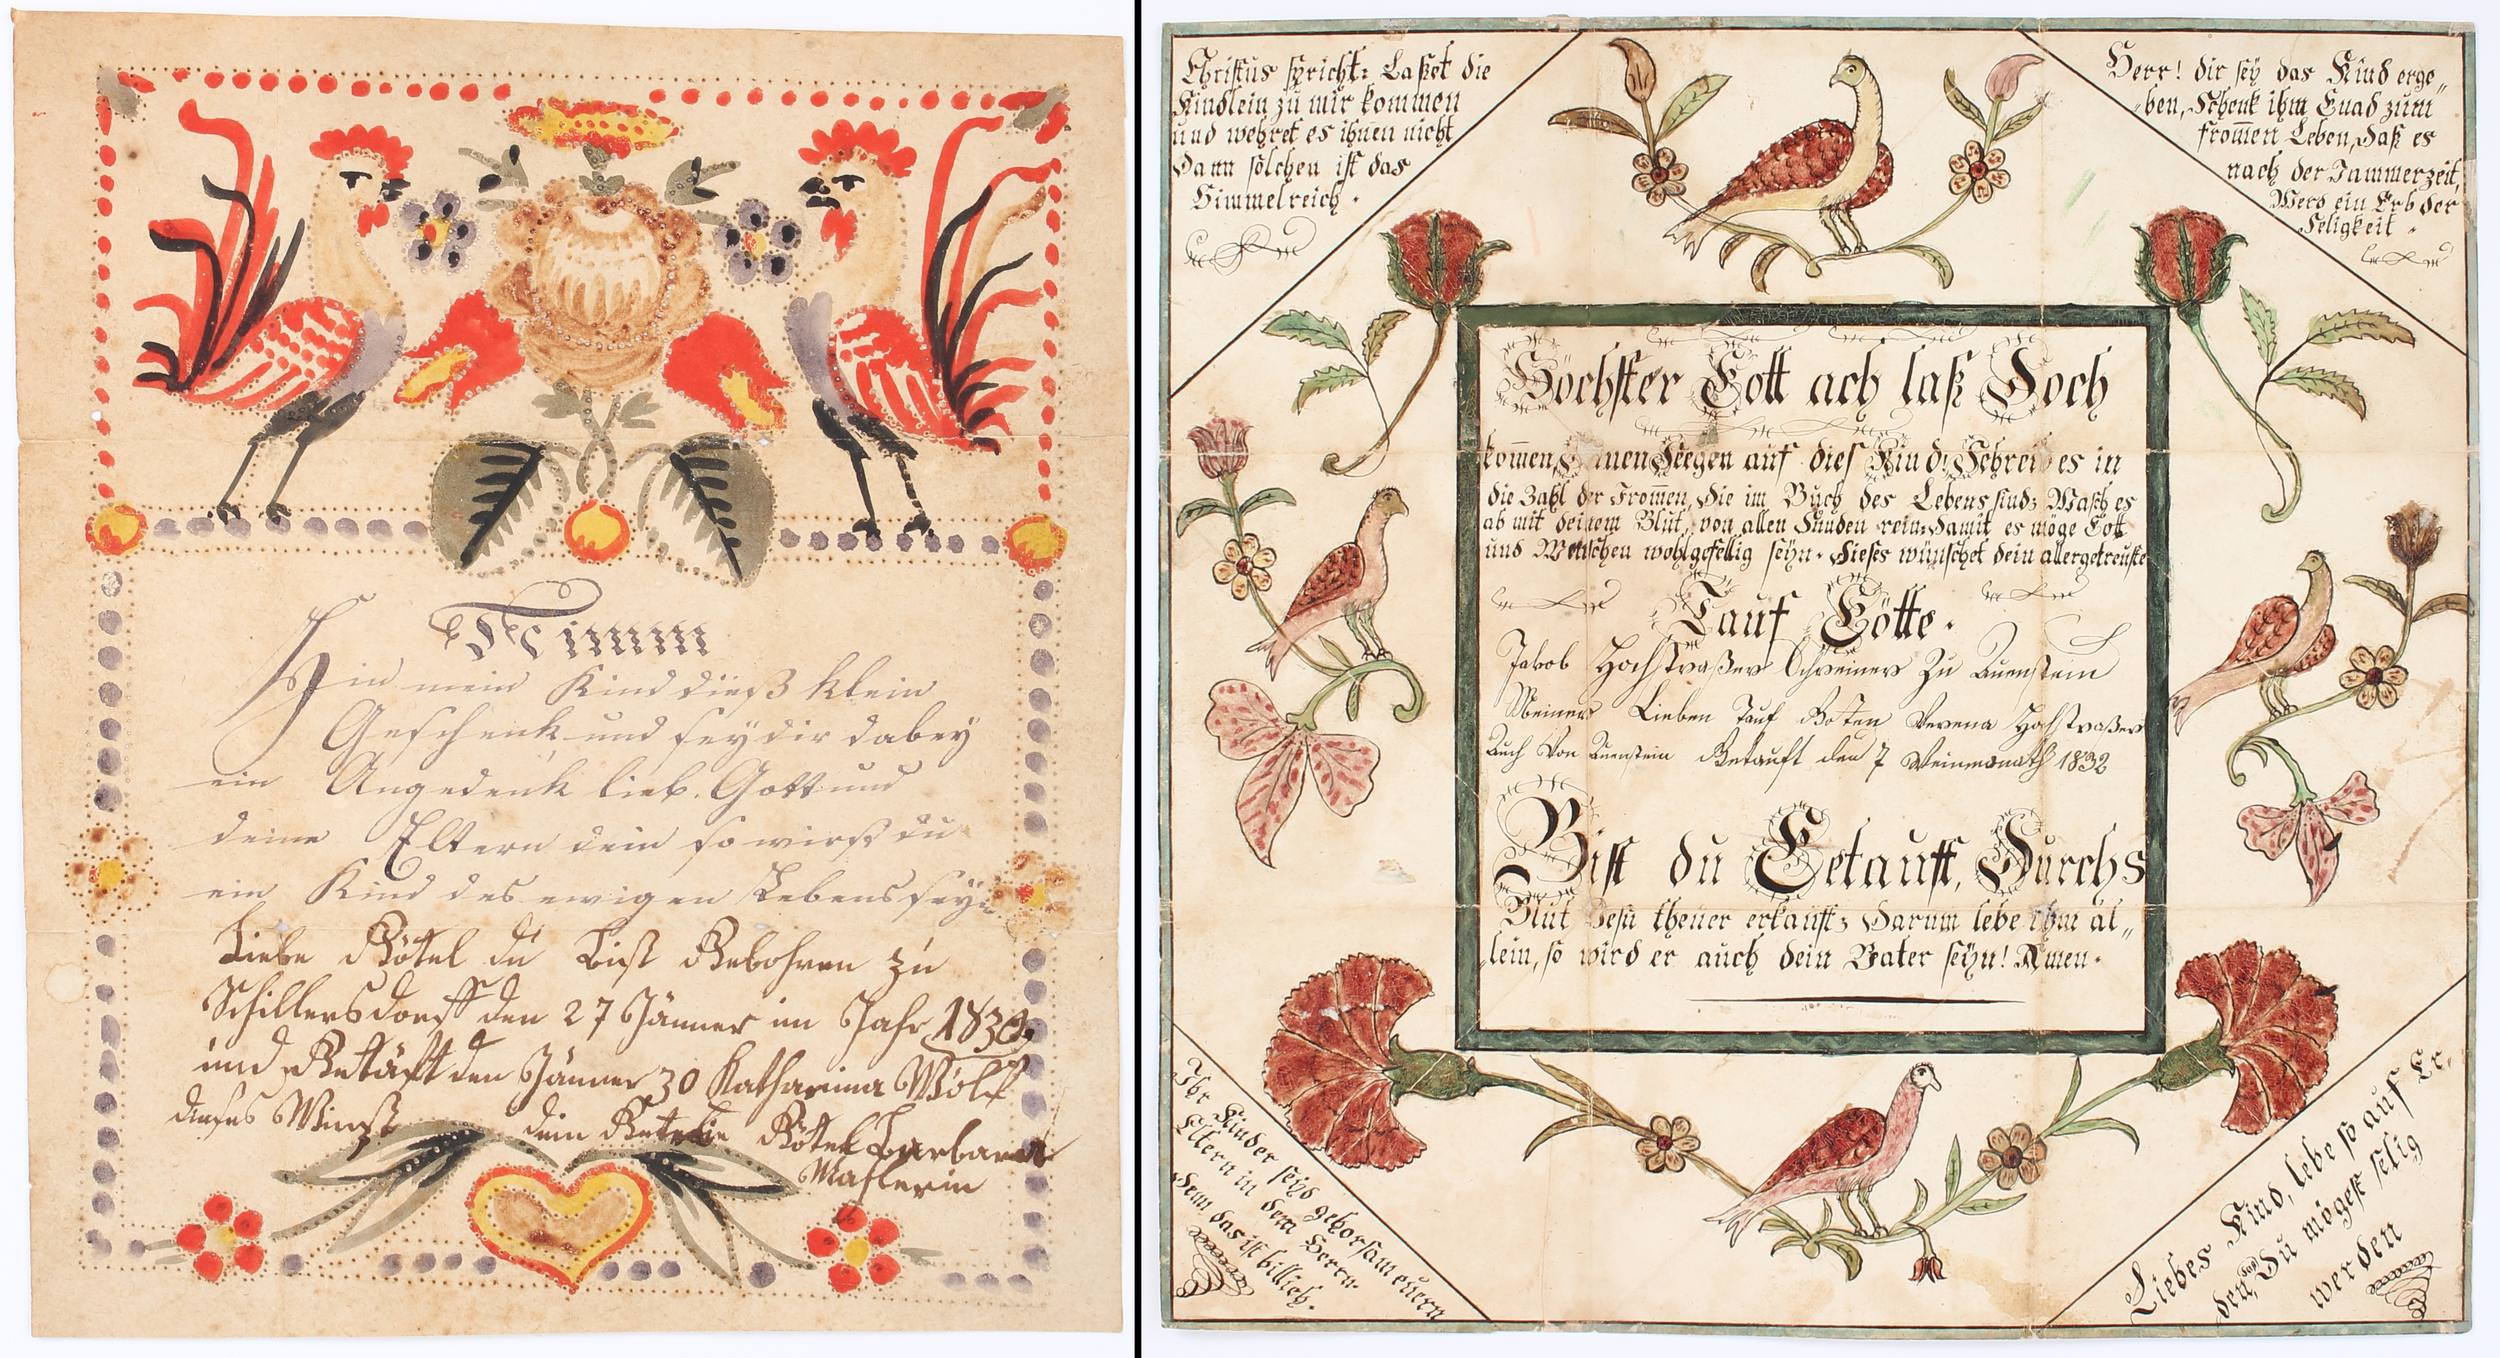 Nimm
Hin mein Kind dieß klein
Geschenk und sey dir dabey
ein Angedenk lieb Gott und
deine Eltern dein so wirst du
ein Kind des ewigen Lebens seyn
Liebe Götel du bist Gebohren zu
Schillersdorff den 27 Jänner im Jahr
und Getauft den Jänner 30 Katharina Wolff
dieses Winst dein Götel Barbara
Christus spricht: Laßet die
Kindlein zu mir kommen
und wehret es ihnen nicht
Dann solchen ist das
Himmelreich.
Herr! dir sey das Kind erge„
„ben, Schenk ihm Gnad zum
from̄en Leben, Daß es
nach der Jammerzeit,
Werd ein Erb der
Seligkeit„
Höchster Gott ach laß Doch
kom̄en Seegen auf dies Kind! Schreib es in
die Zahl der From̄en, Die im Buch des Lebens sind; Wasch es
ab mit deinem Blut, von allen Sünden rein; Damit es möge Gott
und Menschen wohlgefellig seyn. Dieses wünschet dein allergetreuste
Tauf Götte.
Jakob Hochstraßer Schreiner Zu Auenstein
Meiner Lieben Tauf Goten Verena Hochstraßer
Auch Von Auenstein Getauft den 7 Weinmonath 1832
Bist du Getauft, Durchs
Blut Jesu theuer erkauft; Darum lebe ihm al„
„lein, so wird er auch dein Vater seyn! Amen.
Ihr Kinder seyd gehorsam euern
Eltern in dem Herrn.
Denn das ist billich.
Liebes Kind, lebe so auf Er„
den, Das Du mögest selig
werden